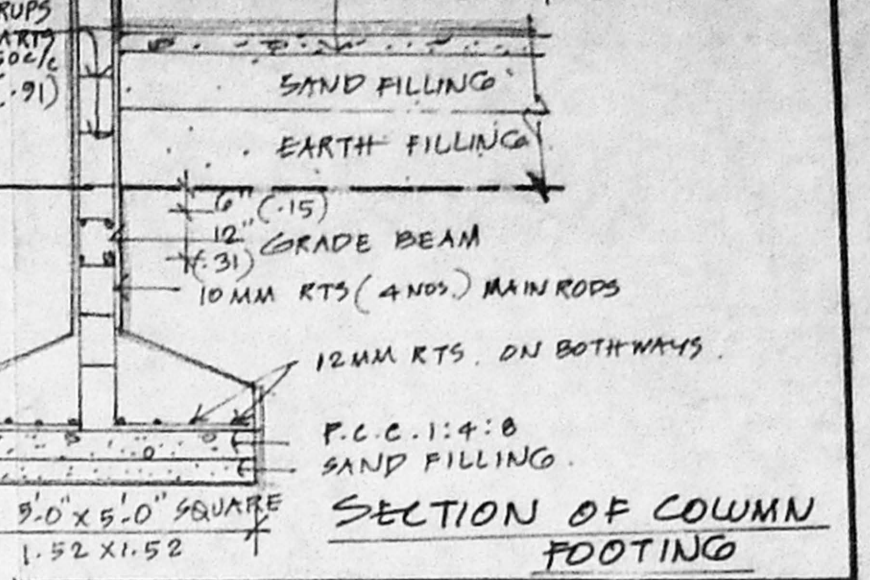 RUPS
ARTS
50 c/c
.91)
SAND FILLING
EARTH FILLING
6" (.15)
12" GRADE BEAM
(.31)
10MM RTS (4 NOS.) MAIN RODS
12MM RTS. ON BOTHWAYS.
P.C.C. 1:4:8
SAND FILLING.
5'-0" X 5'-0" SQUARE
1.52 X 1.52
SECTION OF COLUMN
FOOTING